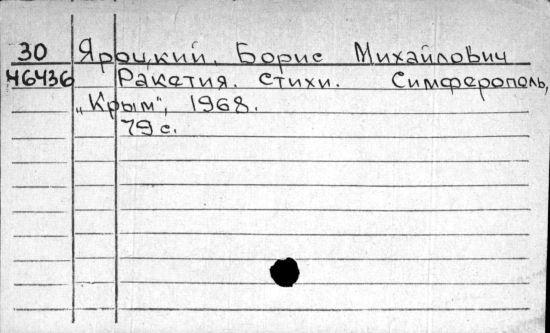 30 Яроцкий, Борис Михайлович
46436 Ракетия. Стихи. Симферополь,
„Крым", 1968.
79 с.